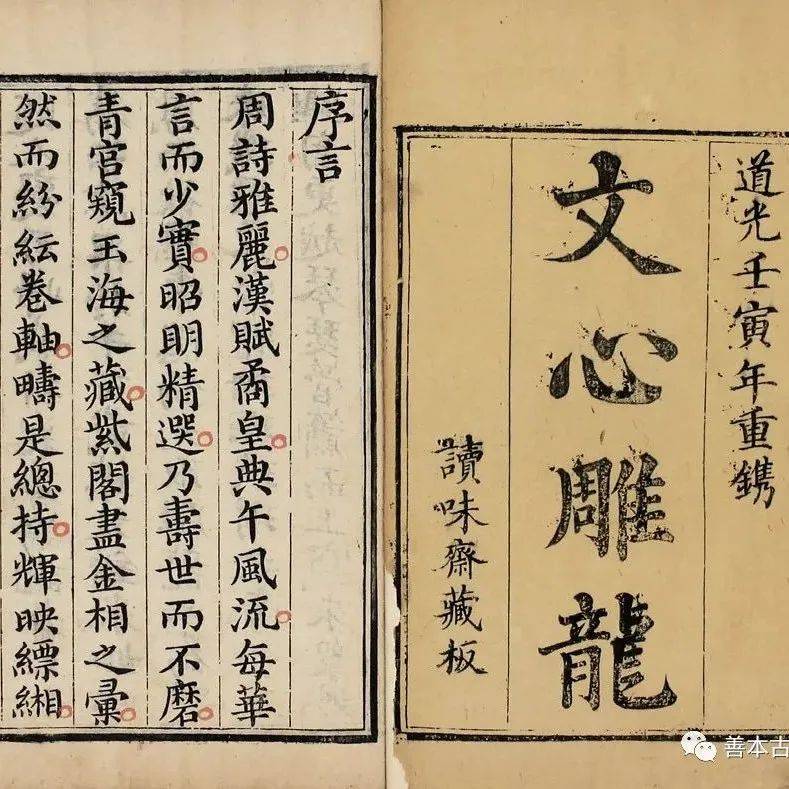 道光壬寅年重鐫
文心雕龍
讀味齋藏板
序言
周詩雅麗。漢賦矞皇。典午風流。每華
言而少實。昭明精選。乃壽世而不磨。
青宮窺玉海之藏。紫閣盡金相之彙。
然而紛紜卷軸。疇是總持。輝映縹緗。
善本古